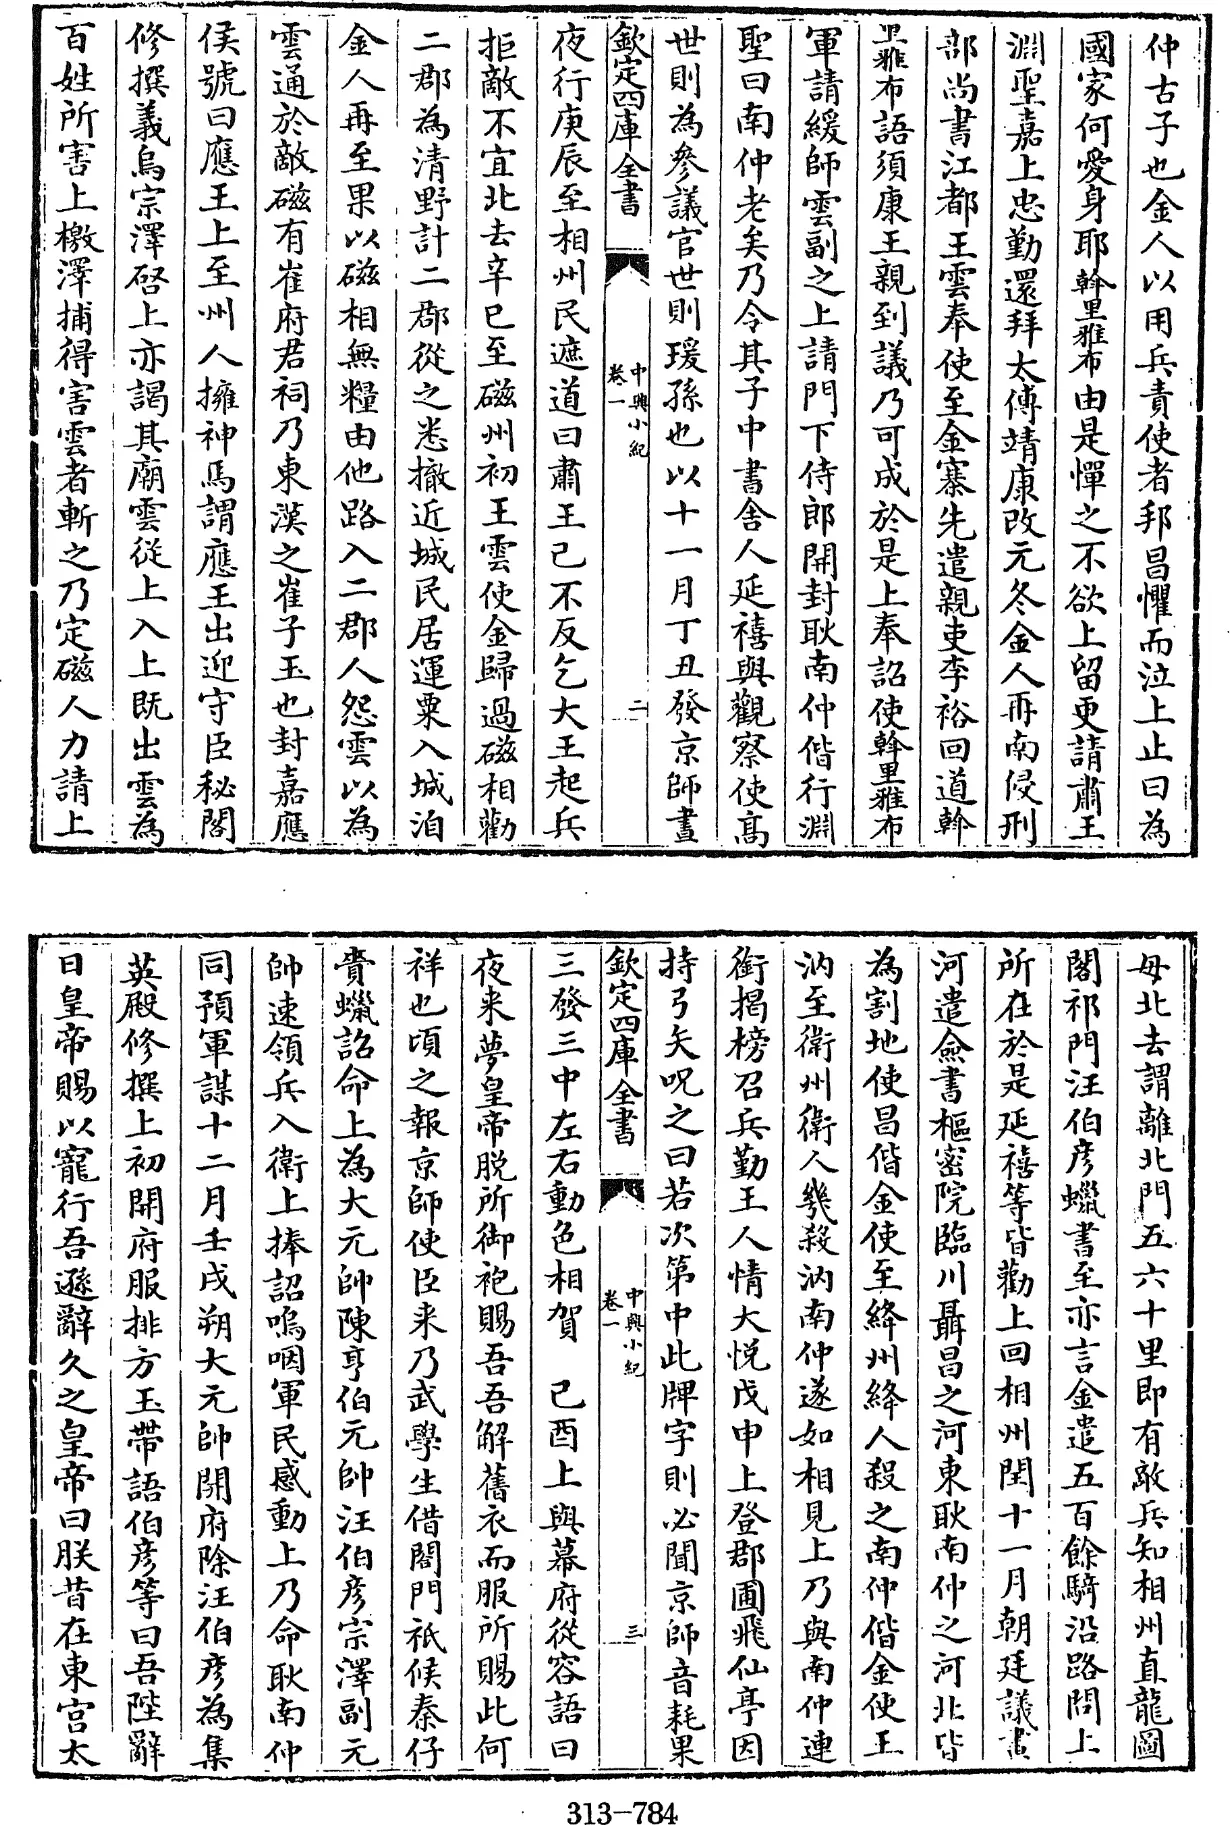 仲古子也金人以用兵責使者邦昌懼而泣上止曰為
國家何愛身耶斡里雅布由是憚之不欲上留更請肅王
淵聖嘉上忠勤還拜太傅靖康改元冬金人再南侵刑
部尚書江都王雲奉使至金寨先遣親吏李裕回道斡
里雅布語須康王親到議乃可成於是上奉詔使斡里雅布
軍請緩師雲副之上請門下侍郎開封耿南仲偕行淵
聖曰南仲老矣乃令其子中書舍人延禧與觀察使高
世則為參議官世則瑗孫也以十一月丁丑發京師晝
欽定四庫全書 中興小紀 卷一 二
夜行庚辰至相州民遮道曰肅王已不反乞大王起兵
拒敵不宜北去辛巳至磁州初王雲使金歸過磁相勸
二郡為清野計二郡從之悉撤近城民居運粟入城洎
金人再至果以磁相無糧由他路入二郡人怨雲以為
雲通於敵磁有崔府君祠乃東漢之崔子玉也封嘉應
侯號曰應王上至州人擁神馬謂應王出迎守臣秘閣
修撰義烏宗澤啓上亦謁其廟雲從上入上既出雲為
百姓所害上檄澤捕得害雲者斬之乃定磁人力請上
毋北去謂離北門五六十里即有敵兵知相州直龍圖
閣祁門汪伯彥蠟書至亦言金遣五百餘騎沿路問上
所在於是延禧等皆勸上回相州閏十一月朝廷議畫
河遣僉書樞密院臨川聶昌之河東耿南仲之河北皆
為割地使昌偕金使至絳州絳人殺之南仲偕金使王
汭至衛州衛人幾殺汭南仲遂如相見上乃與南仲連
銜揭榜召兵勤王人情大悅戊申上登郡圃飛仙亭因
持弓矢呪之曰若次第中此牌字則必聞京師音耗果
欽定四庫全書 中興小紀 卷一 三
三發三中左右動色相賀 己酉上與幕府從容語曰
夜来夢皇帝脫所御袍賜吾吾解舊衣而服所賜此何
祥也頃之報京師使臣来乃武學生借閤門祇候秦仔
賫蠟詔命上為大元帥陳亨伯元帥汪伯彥宗澤副元
帥速領兵入衛上捧詔嗚咽軍民感動上乃命耿南仲
同預軍謀十二月壬戌朔大元帥開府除汪伯彥為集
英殿修撰上初開府服排方玉帶語伯彥等曰吾陛辭
日皇帝賜以寵行吾遜辭久之皇帝曰朕昔在東宮太
313-784